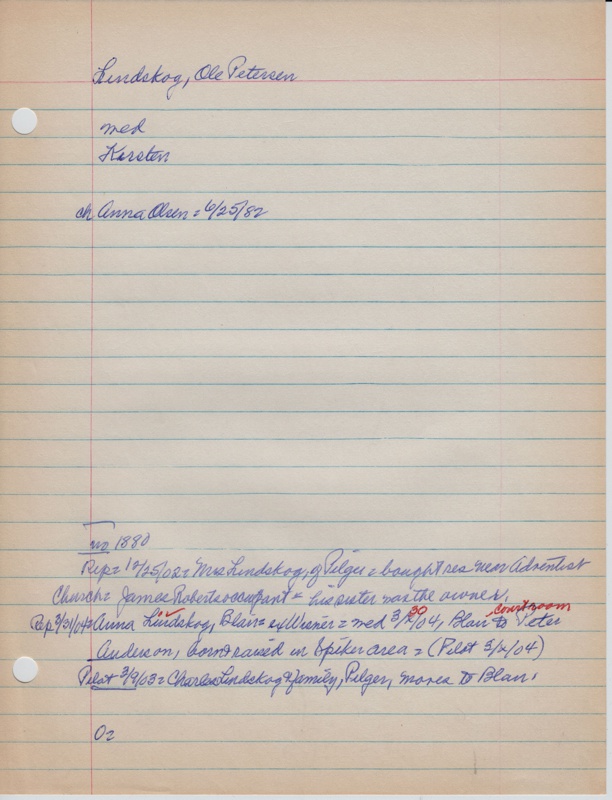 Lindskog, Ole Petersen
med
Karsten
ch Anna Olsen = 6/25/82
no 1880
Rep = 12/25/02 = Mrs Lindskog, of Pilger = bought res near Adventist
Church = James Roberts occupant = his sister was the owner.
Rep 3/31/04 = Anna Lindskog, Blair = ex Wisner = med 3/30/04, Blair courtroom to Peter
Anderson, born & raised in Spiker area = (Pilot 3/ /04)
Pilot 3/9/03 = Charles Lindskog & family, Pilger, moves to Blair.